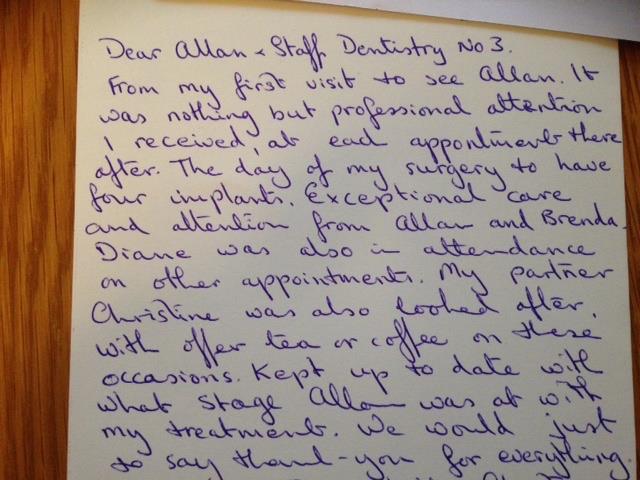 Dear Allan & Staff Dentistry No 3.
From my first visit to see Allan. It
was nothing but professional attention
I received, at each appointment there
after. The day of my surgery to have
four implants. Exceptional care
and attention from Allan and Brenda.
Diane was also in attendance
on other appointments. My partner
Christine was also looked after,
with offer tea or coffee on these
occasions. Kept up to date with
what stage Allan was at with
my treatment. We would just
to say thank-you for everything.